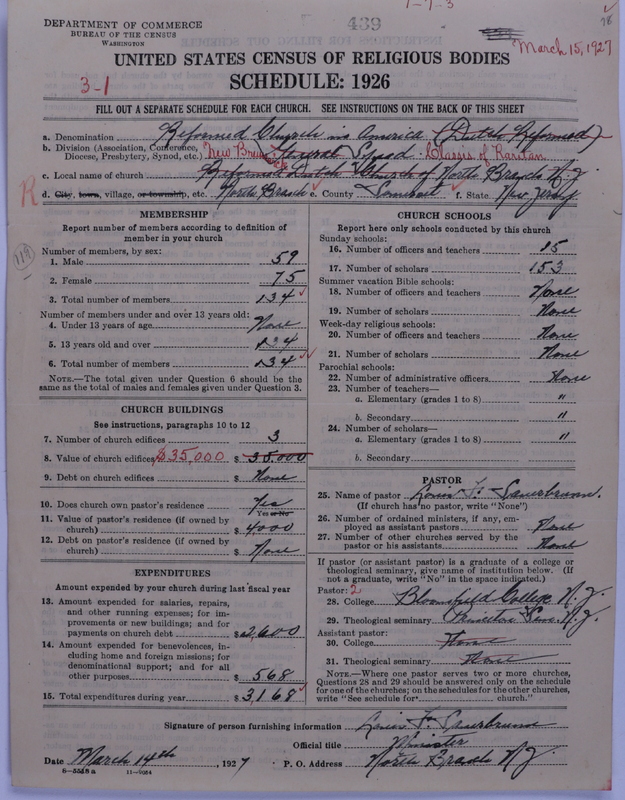 1-7-3
DEPARTMENT OF COMMERCE
BUREAU OF THE CENSUS
WASHINGTON
439
98
March 15, 1927
UNITED STATES CENSUS OF RELIGIOUS BODIES
3-1
SCHEDULE: 1926
FILL OUT A SEPARATE SCHEDULE FOR EACH CHURCH. SEE INSTRUCTIONS ON THE BACK OF THIS SHEET
a. Denomination Reformed Church in America (Dutch Reformed)
b. Division (Association, Conference, Diocese, Presbytery, Synod, etc.) New Bruns General Synod Classis of Raritan
c. Local name of church Reformed Dutch Church of North Branch N. J.
R
d. City, town, village, or township, etc. North Branch e. County Somerset f. State New Jersey
119
MEMBERSHIP
Report number of members according to definition of member in your church
Number of members, by sex:
1. Male 59
2. Female 75
3. Total number of members 134
Number of members under and over 13 years old:
4. Under 13 years of age None
5. 13 years old and over 134
6. Total number of members 134
NOTE.—The total given under Question 6 should be the same as the total of males and females given under Question 3.
CHURCH BUILDINGS
See instructions, paragraphs 10 to 12
7. Number of church edifices 3
8. Value of church edifices $35,000 $ 35,000
9. Debt on church edifices $ None
10. Does church own pastor's residence Yes
Yes or No
11. Value of pastor's residence (if owned by church) $ 4000
12. Debt on pastor's residence (if owned by church) $ None
EXPENDITURES
Amount expended by your church during last fiscal year
13. Amount expended for salaries, repairs, and other running expenses; for improvements or new buildings; and for payments on church debt $2,600
14. Amount expended for benevolences, including home and foreign missions; for denominational support; and for all other purposes $ 568
15. Total expenditures during year $3,168
CHURCH SCHOOLS
Report here only schools conducted by this church
Sunday schools:
16. Number of officers and teachers 15
17. Number of scholars 153
Summer vacation Bible schools:
18. Number of officers and teachers None
19. Number of scholars None
Week-day religious schools:
20. Number of officers and teachers None
21. Number of scholars None
Parochial schools:
22. Number of administrative officers None
23. Number of teachers—
a. Elementary (grades 1 to 8) "
b. Secondary "
24. Number of scholars—
a. Elementary (grades 1 to 8) "
b. Secondary "
PASTOR
25. Name of pastor Louis F. Sauerbrunn.
(If church has no pastor, write "None")
26. Number of ordained ministers, if any, employed as assistant pastors None
27. Number of other churches served by the pastor or his assistants None
If pastor (or assistant pastor) is a graduate of a college or theological seminary, give name of institution below. (If not a graduate, write "No" in the space indicated.)
Pastor: 2
28. College Bloomfield College N. J.
29. Theological seminary Princeton Sem. N. J.
Assistant pastor:
30. College None
31. Theological seminary None
NOTE.—Where one pastor serves two or more churches, Questions 28 and 29 should be answered only on the schedule for one of the churches; on the schedules for the other churches, write "See schedule for church."
Signature of person furnishing information Louis F. Sauerbrunn
Official title Minister
Date March 14th, 1927 P. O. Address North Branch N. J.
8-5518 a 11-9064